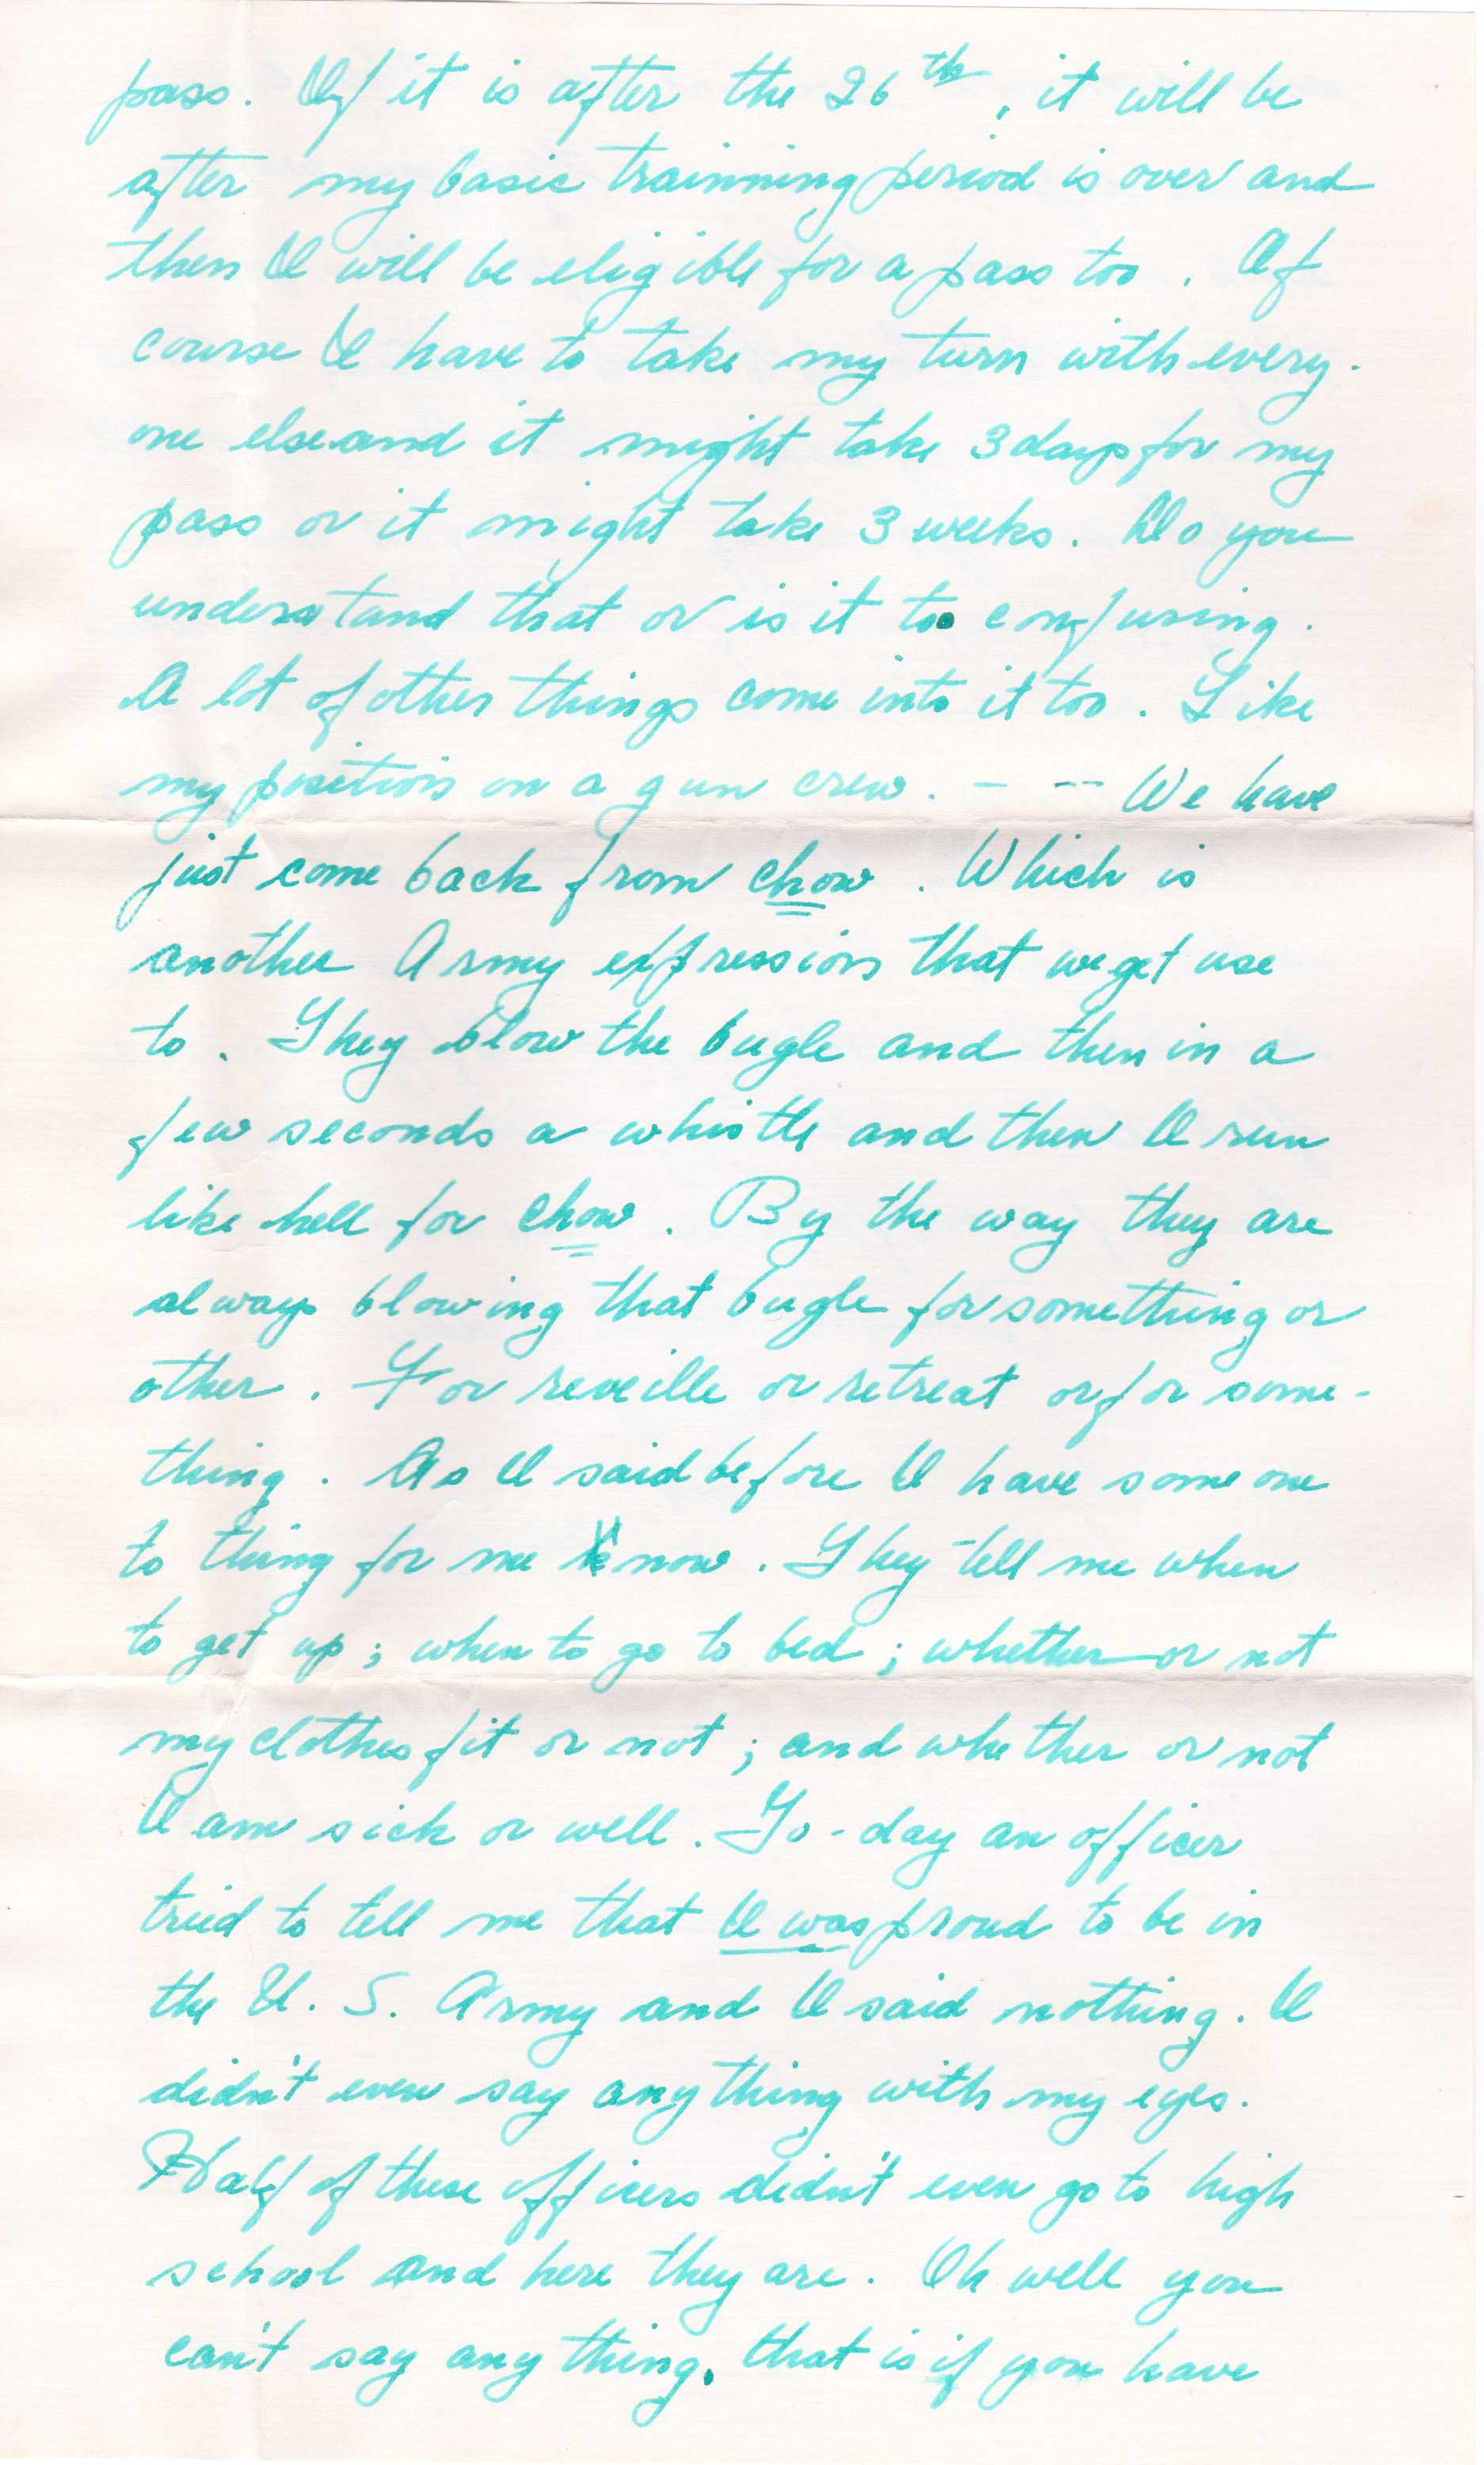 pass. If it is after the 26th, it will be
after my basic trainning period is over and
then I will be eligible for a pass too. Of
course I have to take my turn with every-
one else and it might take 3 days for my
pass or it might take 3 weeks. Do you
understand that or is it too confusing.
A lot of other things come into it too. Like
my position on a gun crew. - -- We have
just come back from chow. Which is
another Army expression that we get use
to. They blow the bugle and then in a
few seconds a whistle and then I run
like hell for chow. By the way they are
always blowing that bugle for something or
other. For reveille or retreat or for some-
thing. As I said before I have some one
to thing for me know. They tell me when
to get up; when to go to bed; whether or not
my clothes fit or not; and whether or not
I am sick or well. To-day an officer
tried to tell me that I was proud to be in
the U. S. Army and I said nothing. I
didn't even say anything with my eyes.
Half of these officers didn't even go to high
school and here they are. Oh well you
can't say any thing, that is if you have